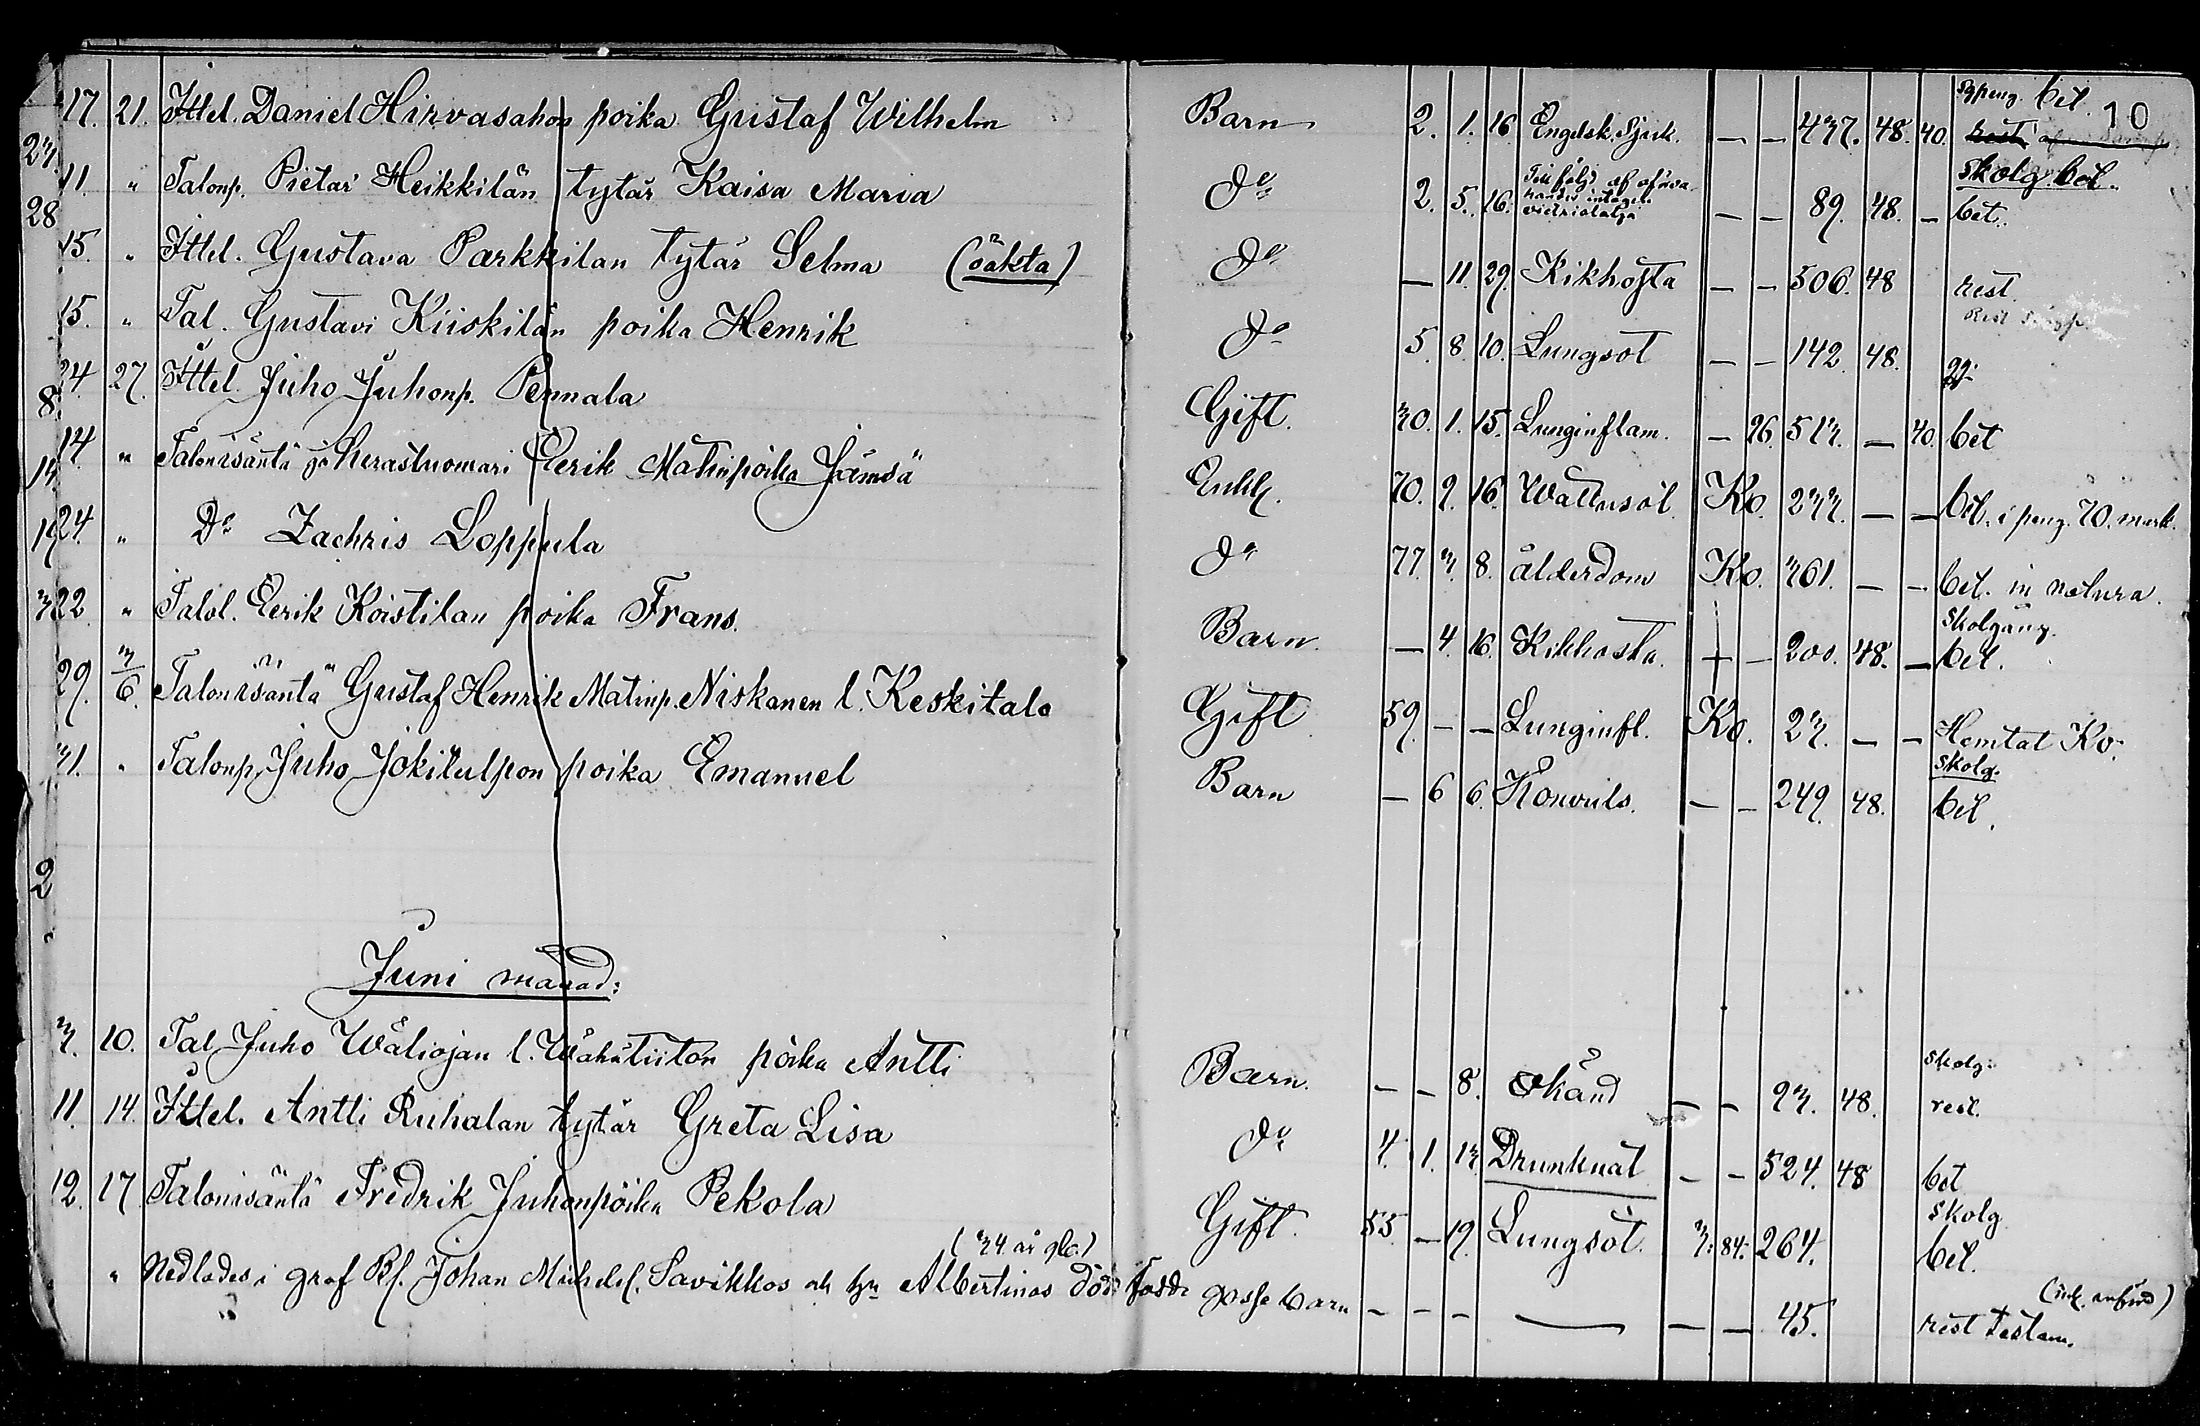 10
17. 21. Ittel. Daniel Hirvasahon poika Gustaf Wilhelm Barn 2. 1. 16 Engelsk. Sjuk. — — 437. 48. 40. bet.
skolg. bet.
11 " Talonp. Pietari Heikkilän tytär Kaisa Maria Do 2. 5. 16. Till följd af — — 89. 48. — bet.
15. " Ittel. Gustava Parkkilan tytär Selma (oäkta) Do — 11. 29. Kikhosta — — 506. 48 rest.
15. " Tal. Gustavi Kiiskilän poika Henrik Do 5. 8. 10. Lungsot — — 142 48.
24 27. Ittel. Juho Juhonp. Pernala Gift. 30. 1. 15. Lunginflam. — 26. 513. — 40. bet
14. " Talonisäntä ja Herastuomari Eerik Matinpoika Jämsä Enkl. 70. 9. 16. Wattusot Ko. 233. — — bet. i peng. 70. mark.
24. " Do Zachris Loppula Do 77. 3. 8. ålderdom Ko. 361. — — bet. in natura.
Skolgång.
22. " Talol. Eerik Koistilan poika Frans. Barn. — 4. 16. Kikhosta. — 200. 48. — bet.
29. 3/6. Talonisäntä Gustaf Henrik Matinp. Niskanen l. Keskitalo Gift 59. — — Lunginfl. Ko. 23. — — Hemtat Ko.
skolg.
31. " Talonp. Juho Jokitulpon poika Emanuel Barn — 6 6. Konvuls. — — 249. 48. bet.
Juni månad:
skolg:
3. 10. Tal Juho Wäliojan l. Wähätiiton poika Antti Barn. — — 8. okänd — — 93. 48. rest.
11. 14. Ittel. Antti Ruhalan tytär Greta Lisa Do 4. 1. 13 Drunknat — — 524. 48 bet
skolg
12. 17 Talonisäntä Fredrik Juhonpoika Pekola Gift. 55. — 19. Lungsot. 3: 84: 264. bet.
(34 år gl.)
" Nedlades i graf Johan Michelss. Savikkos och Albertinas död födde gosse barn — — — — — — 45. rest testam.
23.
28
8.
14.
19
3
2